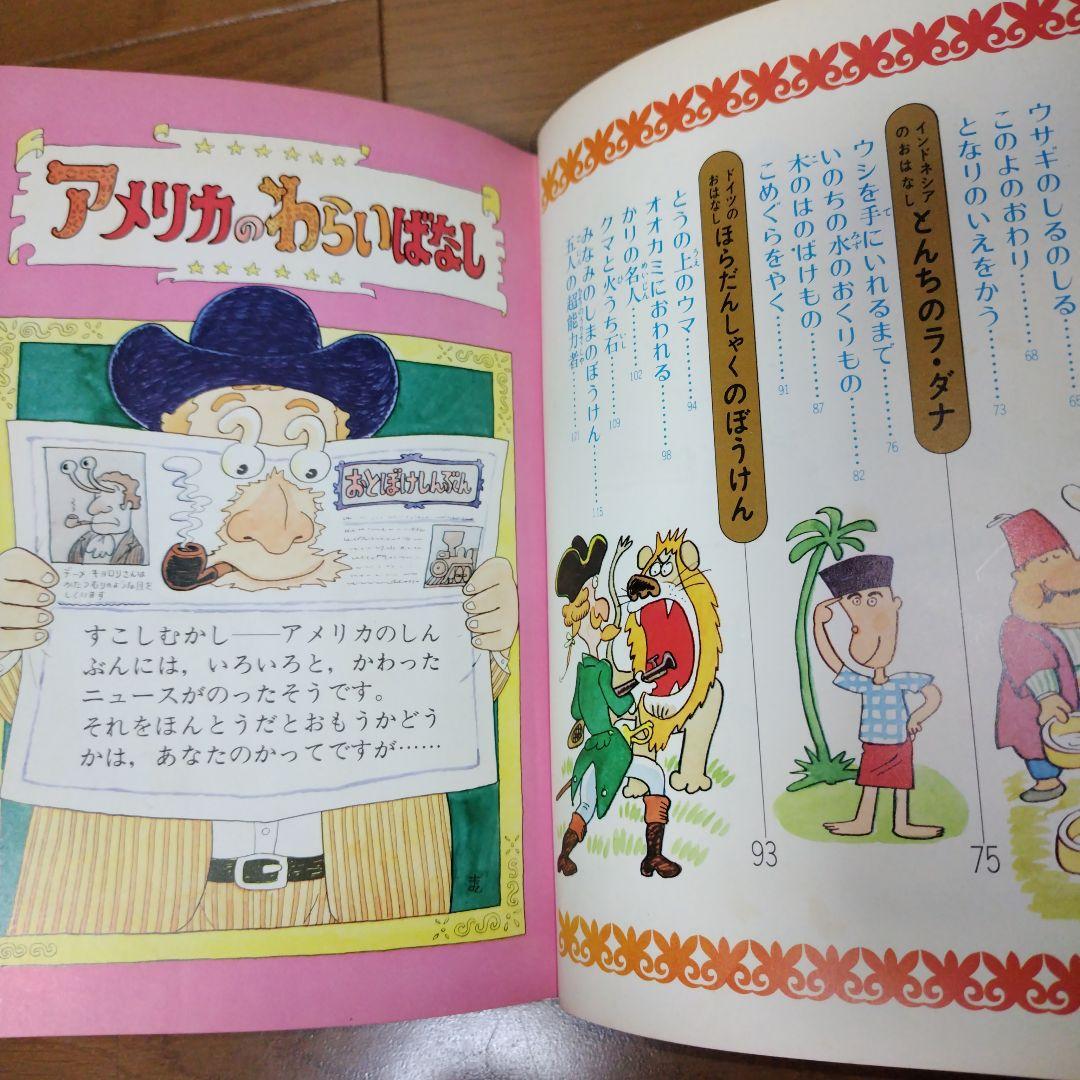 アメリカのわらいばなし
おとぼけしんぶん
デーメ キョロリさんは
かたつむりのような目を
しています
すこしむかし――アメリカのしん
ぶんには，いろいろと，かわった
ニュースがのったそうです。
それをほんとうだとおもうかどう
かは，あなたのかってですが……
ウサギのしるのしる………65
このよのおわり………68
となりのいえをかう………73
インドネシアのおはなし とんちのラ・ダナ 75
ウシを手にいれるまで………76
いのちの水のおくりもの………82
木のはのばけもの………87
こめぐらをやく………91
ドイツのおはなし ほらだんしゃくのぼうけん 93
とうの上のウマ………94
オオカミにおわれる………98
かりの名人………102
クマと火うち石………109
みなみのしまのぼうけん………115
五人の超能力者………121